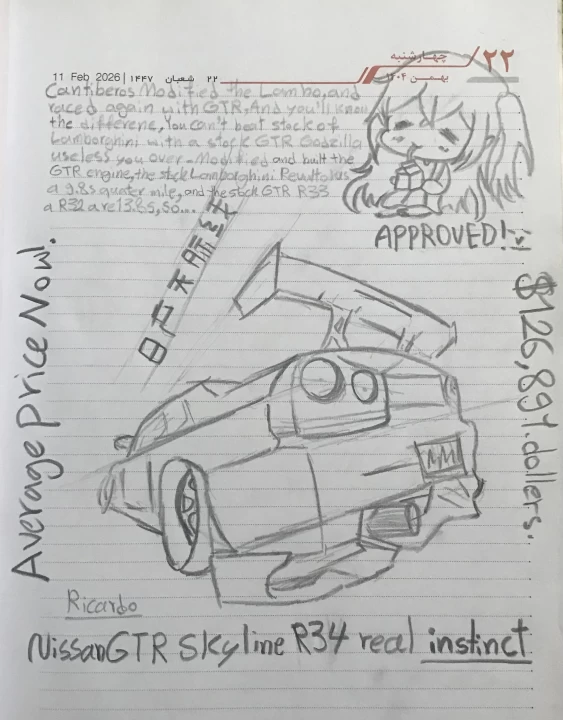 چهارشنبه
۲۲
11 Feb 2026 | ۱۴۴۷ شعبان ۲۲
بهمن ۱۴۰۴
Cantiberos Modified the Lambo, and
raced again with GTR, And you'll know
the differene, You can't beat stock of
Lamborghini with a stock GTR Godzilla
useless you over-Modified and built the
GTR engine, the stck Lamborghini Revulto has
a 9.8s quater mile, and the stock GTR R33
a R32 are 13.8s, so...
APPROVED!
Average Price Now.
$126,897.dollers.
Ricardo
Nissan GTR Skyline R34 real instinct